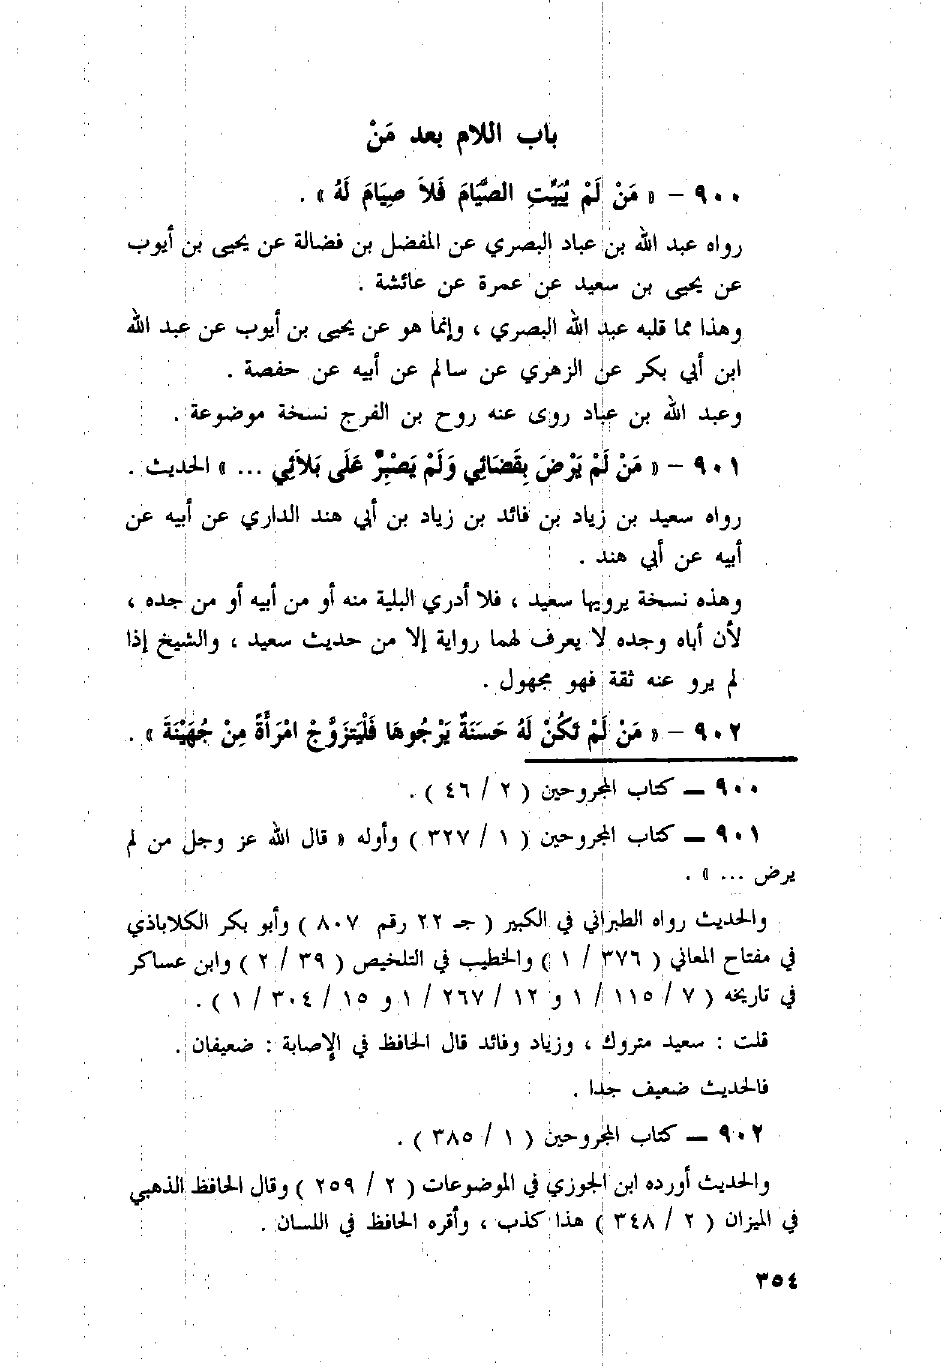 باب اللام بعد مَنْ
٩٠٠ – « مَنْ لَمْ يُبَيِّتِ الصِّيَامَ فَلاَ صِيَامَ لَهُ » .
رواه عبد الله بن عباد البصري عن المفضل بن فضالة عن يحيى بن أيوب
عن يحيى بن سعيد عن عمرة عن عائشة .
وهذا مما قلبه عبد الله البصري ، وإنما هو عن يحيى بن أيوب عن عبد الله
ابن أبي بكر عن الزهري عن سالم عن أبيه عن حفصة .
وعبد الله بن عباد روى عنه روح بن الفرج نسخة موضوعة .
٩٠١ – « مَنْ لَمْ يَرْضَ بِقَضَائِي وَلَمْ يَصْبِرْ عَلَى بَلاَئِي ... » الحديث .
رواه سعيد بن زياد بن فائد بن زياد بن أبي هند الداري عن أبيه عن
أبيه عن أبي هند .
وهذه نسخة يرويها سعيد ، فلا أدري البلية منه أو من أبيه أو من جده ،
لأن أباه وجده لا يعرف لهما رواية إلا من حديث سعيد ، والشيخ إذا
لم يرو عنه ثقة فهو مجهول .
٩٠٢ – « مَنْ لَمْ تَكُنْ لَهُ حَسَنَةٌ يَرْجُوهَا فَلْيَتَزَوَّجْ امْرَأَةً مِنْ جُهَيْنَةَ » .
٩٠٠ – كتاب المجروحين ( ٢ / ٤٦ ) .
٩٠١ – كتاب المجروحين ( ١ / ٣٢٧ ) وأوله « قال الله عز وجل من لم
يرض ... » .
والحديث رواه الطبراني في الكبير ( جـ ٢٢ رقم ٨٠٧ ) وأبو بكر الكلاباذي
في مفتاح المعاني ( ٣٧٦ / ١ ) والخطيب في التلخيص ( ٣٩ / ٢ ) وابن عساكر
في تاريخه ( ٧ / ١١٥ / ١ و ١٢ / ٢٦٧ / ١ و ١٥ / ٣٠٤ / ١ ) .
قلت : سعيد متروك ، وزياد وفائد قال الحافظ في الإصابة : ضعيفان .
فالحديث ضعيف جدا .
٩٠٢ – كتاب المجروحين ( ١ / ٣٨٥ ) .
والحديث أورده ابن الجوزي في الموضوعات ( ٢ / ٢٥٩ ) وقال الحافظ الذهبي
في الميزان ( ٢ / ٣٤٨ ) هذا كذب ، وأقره الحافظ في اللسان .
٣٥٤